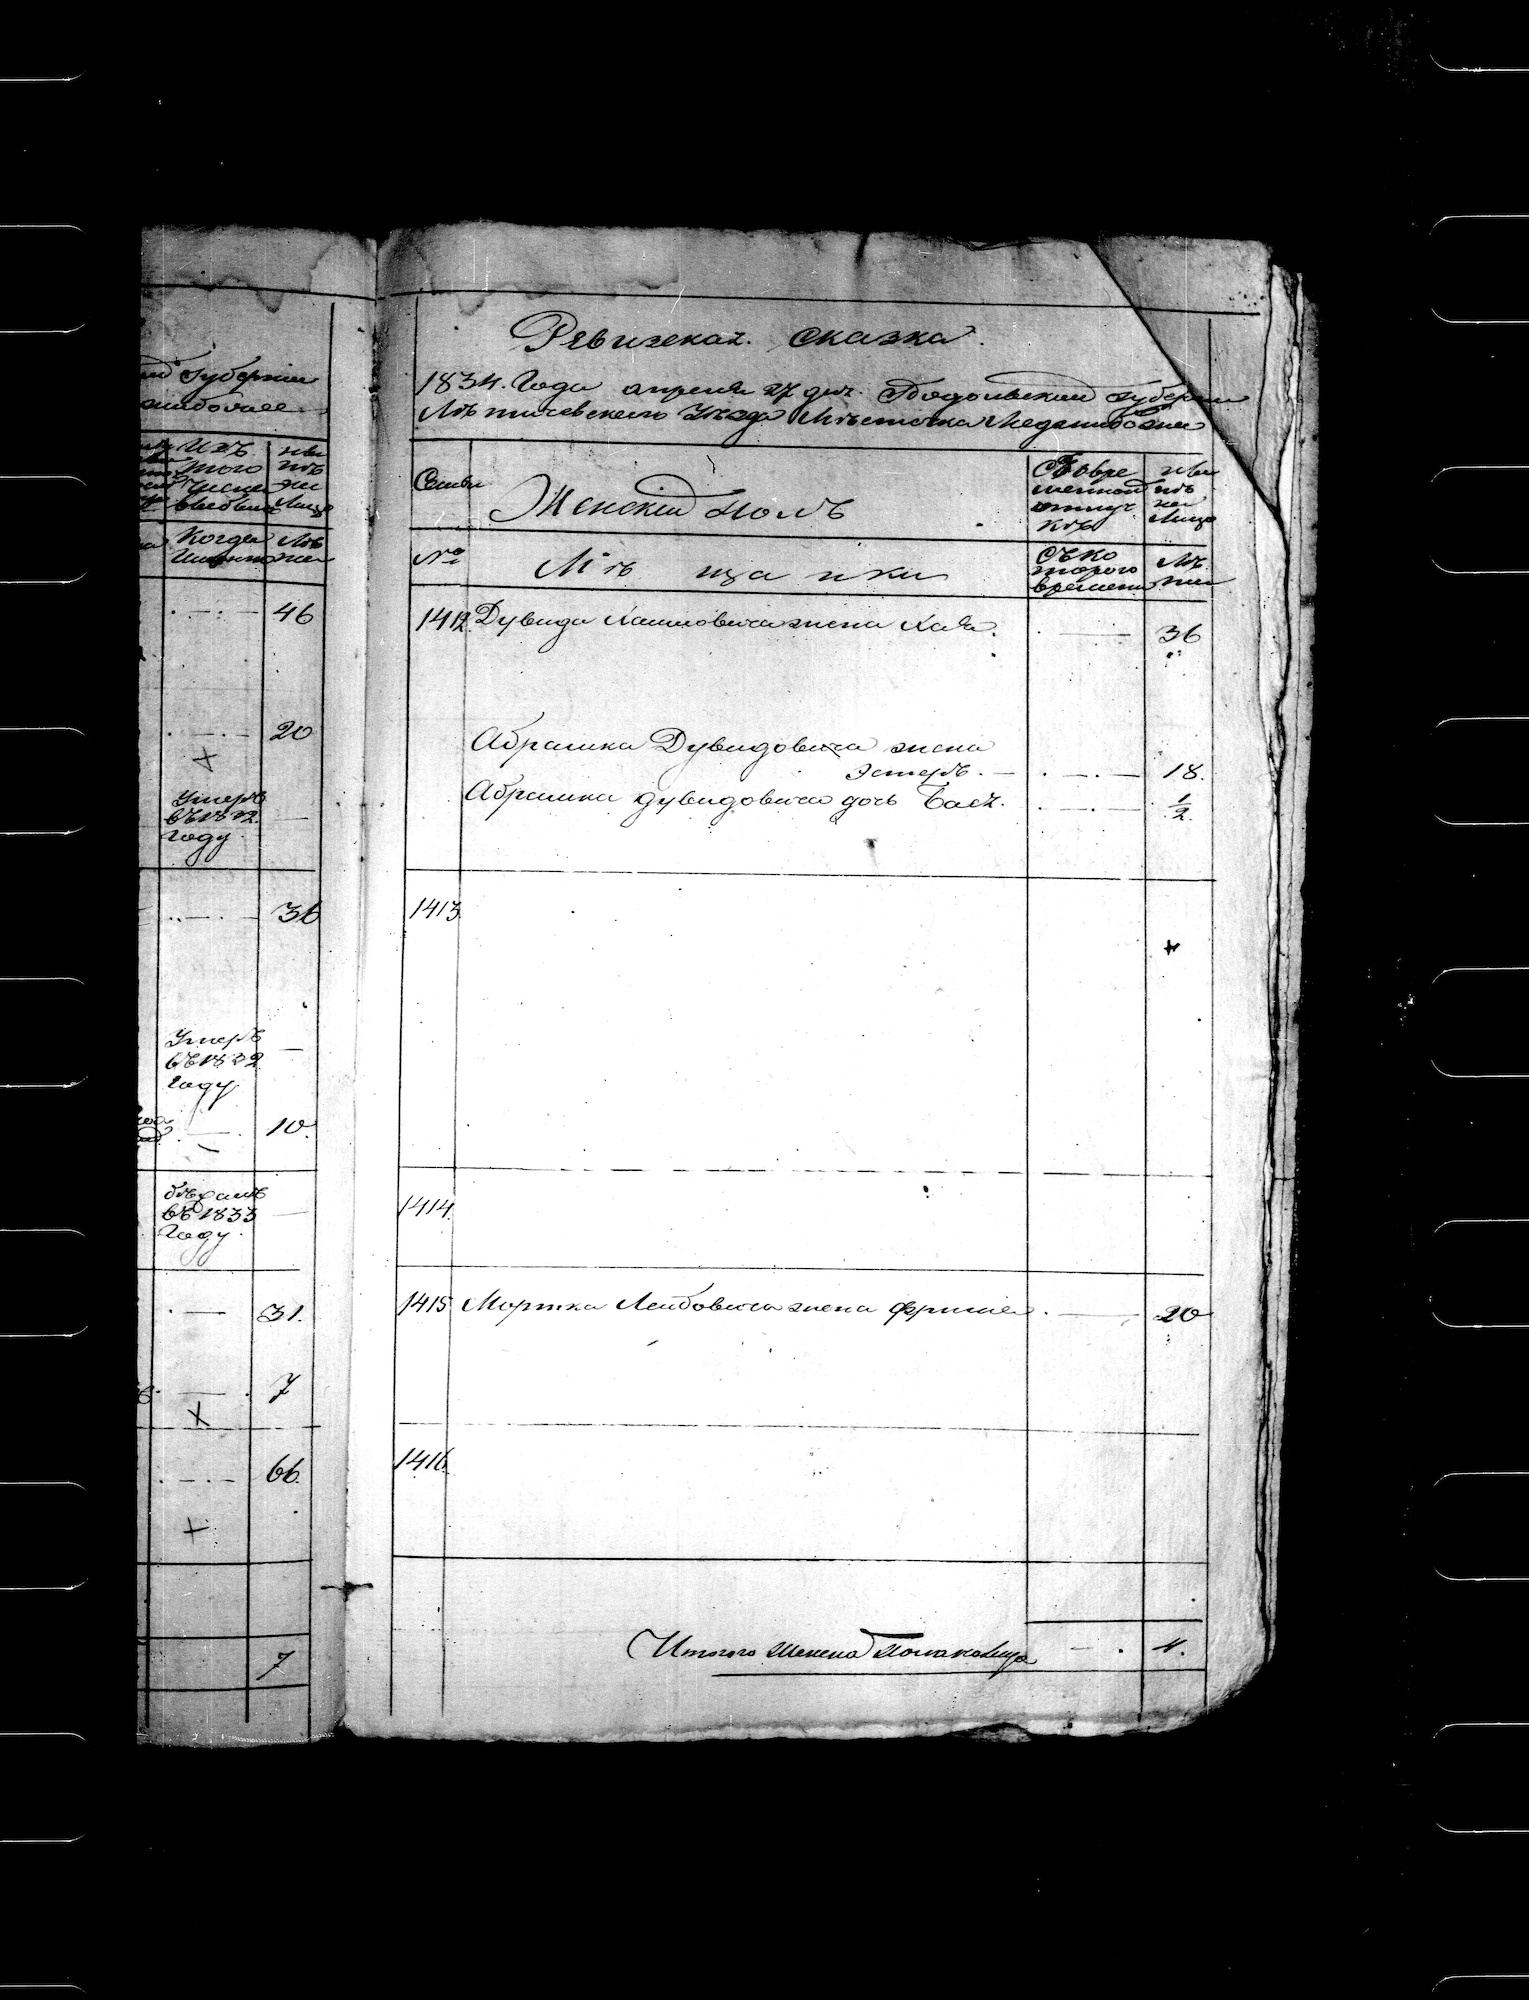 губернiи
Изъ
того
числа
выбыло
ны
нѣ
на
Лицо
Когда
Лѣ
та
46
20
Умеръ
въ 1832
году.
36
Умеръ
въ 1832
году
10.
въ 1833
году.
31.
7
66.
7
Ревизская. Сказка.
1834. Года апреля 27 дня. Подольской губернiи
Лѣтичевскаго Уѣзда Мѣстечка Меджибожа
Семьи
Женскiй полъ
Во вре
менной
отлуч
кѣ
ны
нѣ
на
Лицо
№
Мѣщанки
Съ ко
торого
времени
Лѣ
та
1412. Дувида Хаимовича жена Хая. 36
Абрамка Дувидовича жена
Эстеръ. 18.
Абрамка Дувидовича дочь Бася. 1/2.
1413.
1414.
1415 Мортка Лейбовича жена Фрима 20
1416.
Итого женска пола на лицо 4.